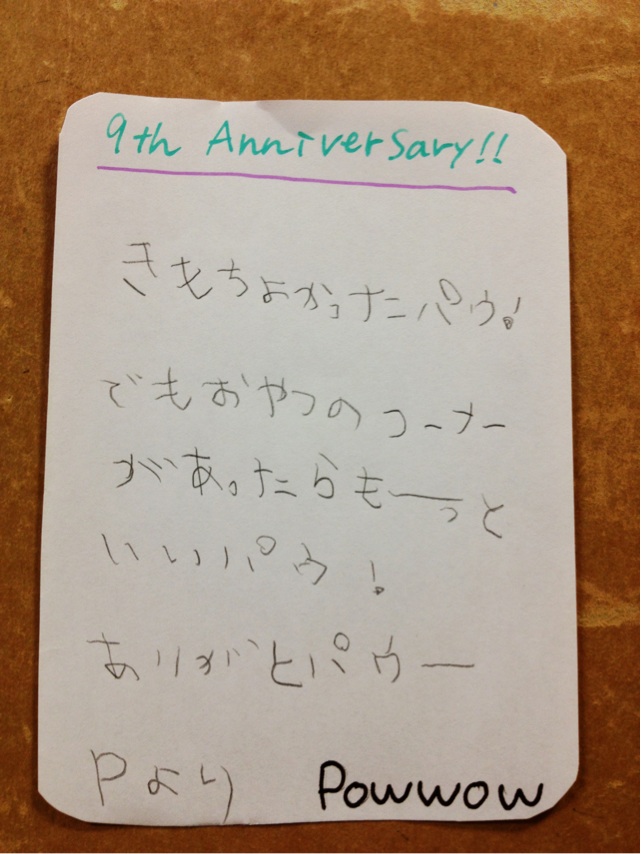 9th Anniversary!!
きもちよかったパウ!
でもおやつのコーナー
があったらもーっと
いいパウ!
ありがとパウー
Pより
Powwow